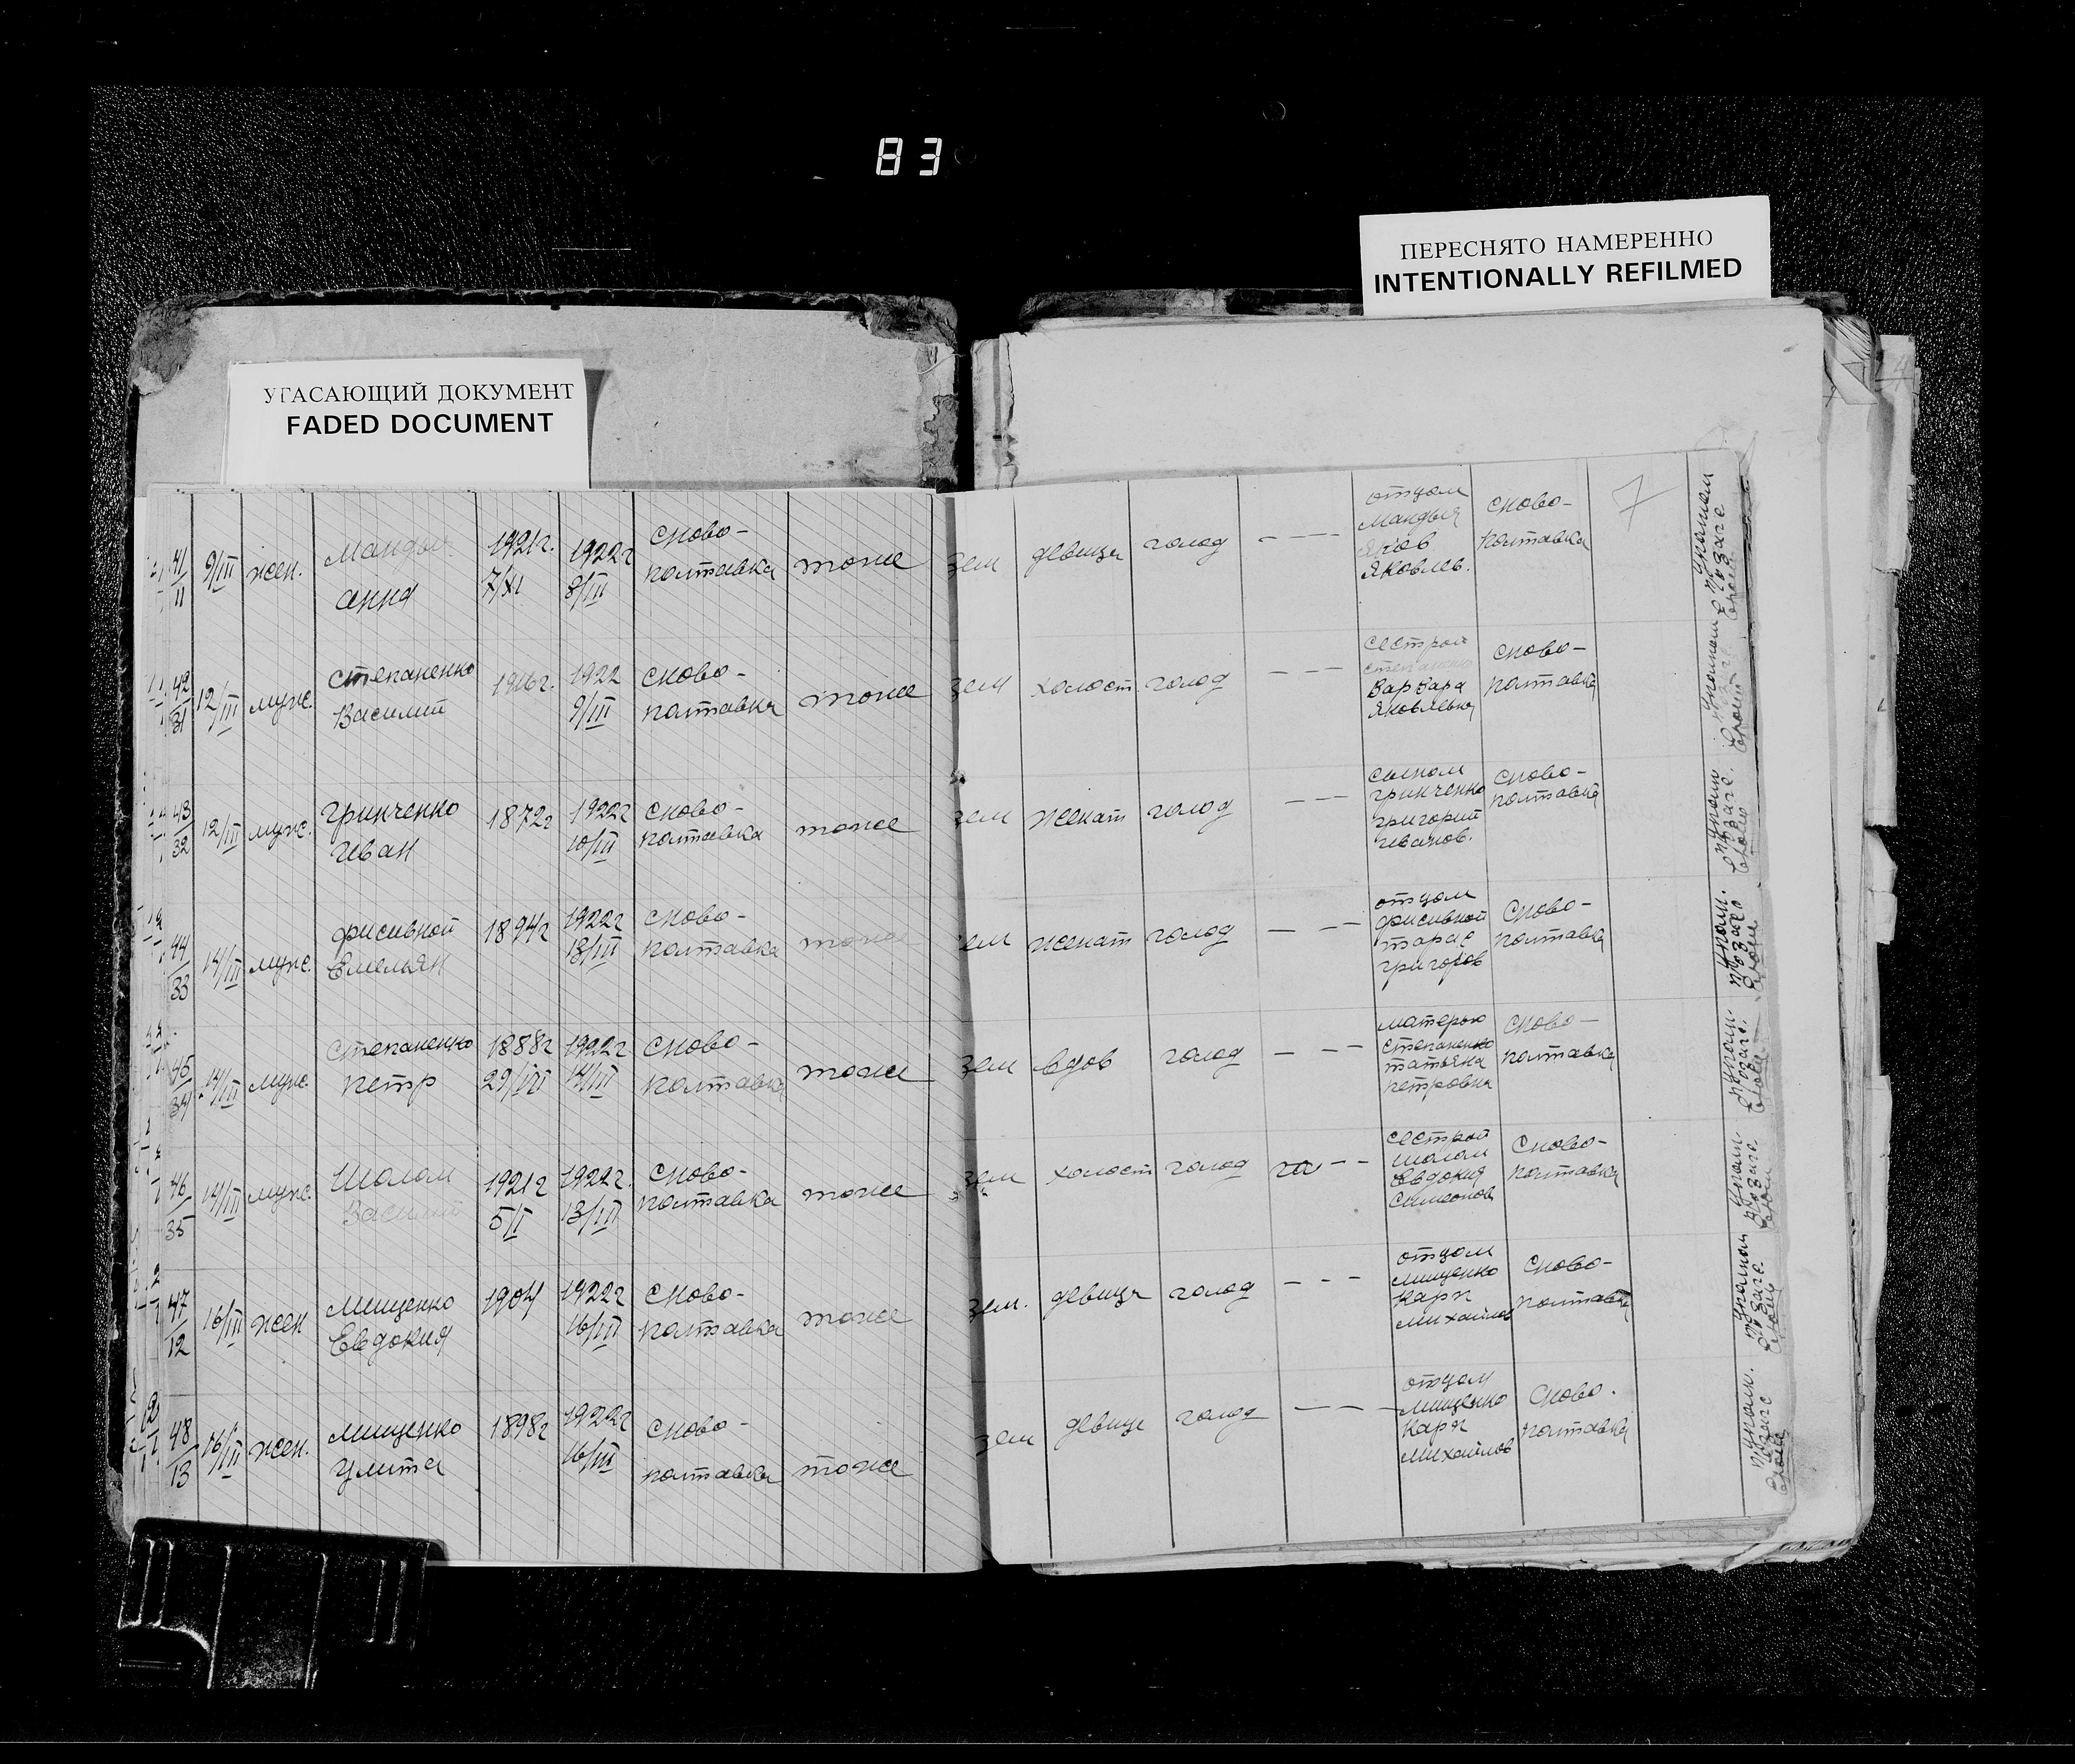 83
ПЕРЕСНЯТО НАМЕРЕННО
INTENTIONALLY REFILMED
УГАСАЮЩИЙ ДОКУМЕНТ
FADED DOCUMENT
7
41/11 9/III жен. Мандык Анна 1921г. 7/XI 1922г 8/III с Ново-полтавка тоже зем девица голод - - - - отцом Мандык Яков Яковлев. с Ново-полтавка
42/31 12/III муж. Степаненко Василий 1916г. 1922 9/III с Ново-полтавка тоже зем холост голод - - - сестрой Степаненко Варвара Яковлевна с Ново-полтавка
43/32 12/III муж. Гринченко Иван 1872г 1922г 10/III с Ново-полтавка тоже зем женат голод - - - сыном Гринченко Григорий Иванов. с Ново-полтавка
44/33 14/III муж. Фисивной Емельян 1894г 1922г 13/III с Ново-полтавка тоже зем женат голод - - - отцом Фисивной Тарас Григоров с Ново-полтавка
45/34 14/III муж. Степаненко Петр 1888г 29/VI 1922г 14/III с Ново-полтавка тоже зем вдов голод - - - матерью Степаненко Татьяна Петровна с Ново-полтавка
46/35 14/III муж. Шолом Василий 1921г 5/I 1922г. 13/III с Ново-полтавка тоже зем холост голод - - сестрой Шолом Евдокия Симеонов с Ново-полтавка
47/12 16/III жен Мищенко Евдокия 1904 1922г 16/III с Ново-полтавка тоже зем. девица голод - - - отцом Мищенко Карп Михайлов с Ново-полтавка
48/13 16/III жен. Мищенко Улита 1898г 1922г 16/III с Ново-полтавка тоже зем девица голод - - - отцом Мищенко Карп Михайлов с Ново-полтавка